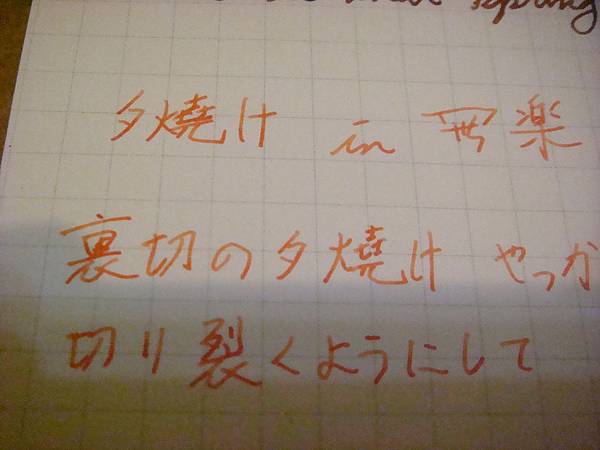 spring
夕燒け in
裏切の夕燒け やっか
切り裂くようにして